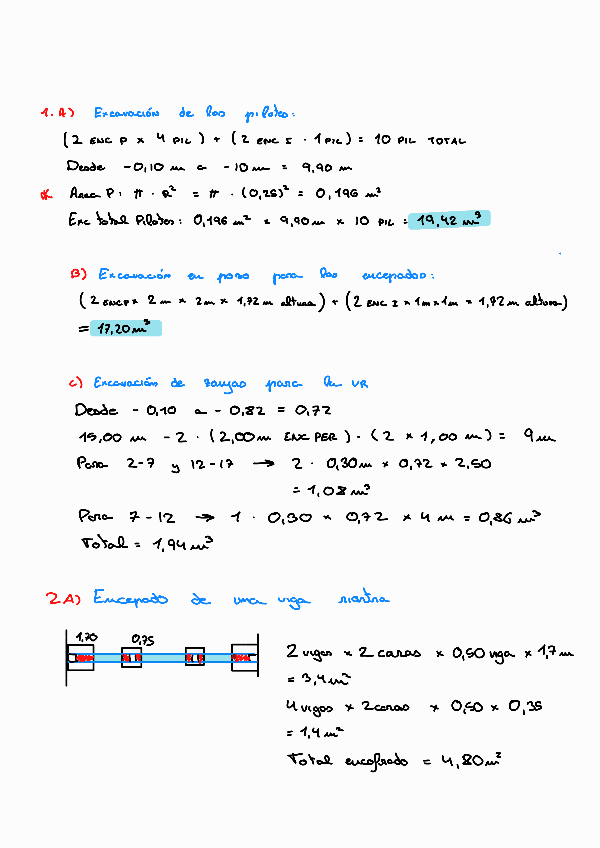 1. A) Excavación de los pilotes:
(2 ENC P x 4 PIL) + (2 ENC I · 1 PIL) = 10 PIL TOTAL
Desde -0,10 m a -10 m = 9,90 m
Area P: π · R² = π · (0,25)² = 0,196 m²
Exc total Pilotes: 0,196 m² x 9,90 m x 10 PIL = 19,42 m³
B) Excavación en pozo para los encepados:
(2 ENC P x 2 m x 2 m x 1,72 m altura) + (2 ENC I x 1m x 1m x 1,72 m altura)
= 17,20 m³
C) Excavación de zanjas para la VR
Desde -0,10 a -0,82 = 0,72
15,00 m - 2 · (2,00 m ENC PER) - (2 x 1,00 m) = 9 m
Para 2-7 y 12-17 → 2 · 0,30 m x 0,72 x 2,50
= 1,08 m³
Para 7-12 → 1 · 0,30 x 0,72 x 4 m = 0,86 m³
Total = 1,94 m³
2 A) Encepado de una viga riostra
1,70 0,75
2 vigas x 2 caras x 0,50 viga x 1,7 m
= 3,4 m²
4 vigas x 2 caras x 0,50 x 0,35
= 1,4 m²
Total encofrado = 4,80 m²